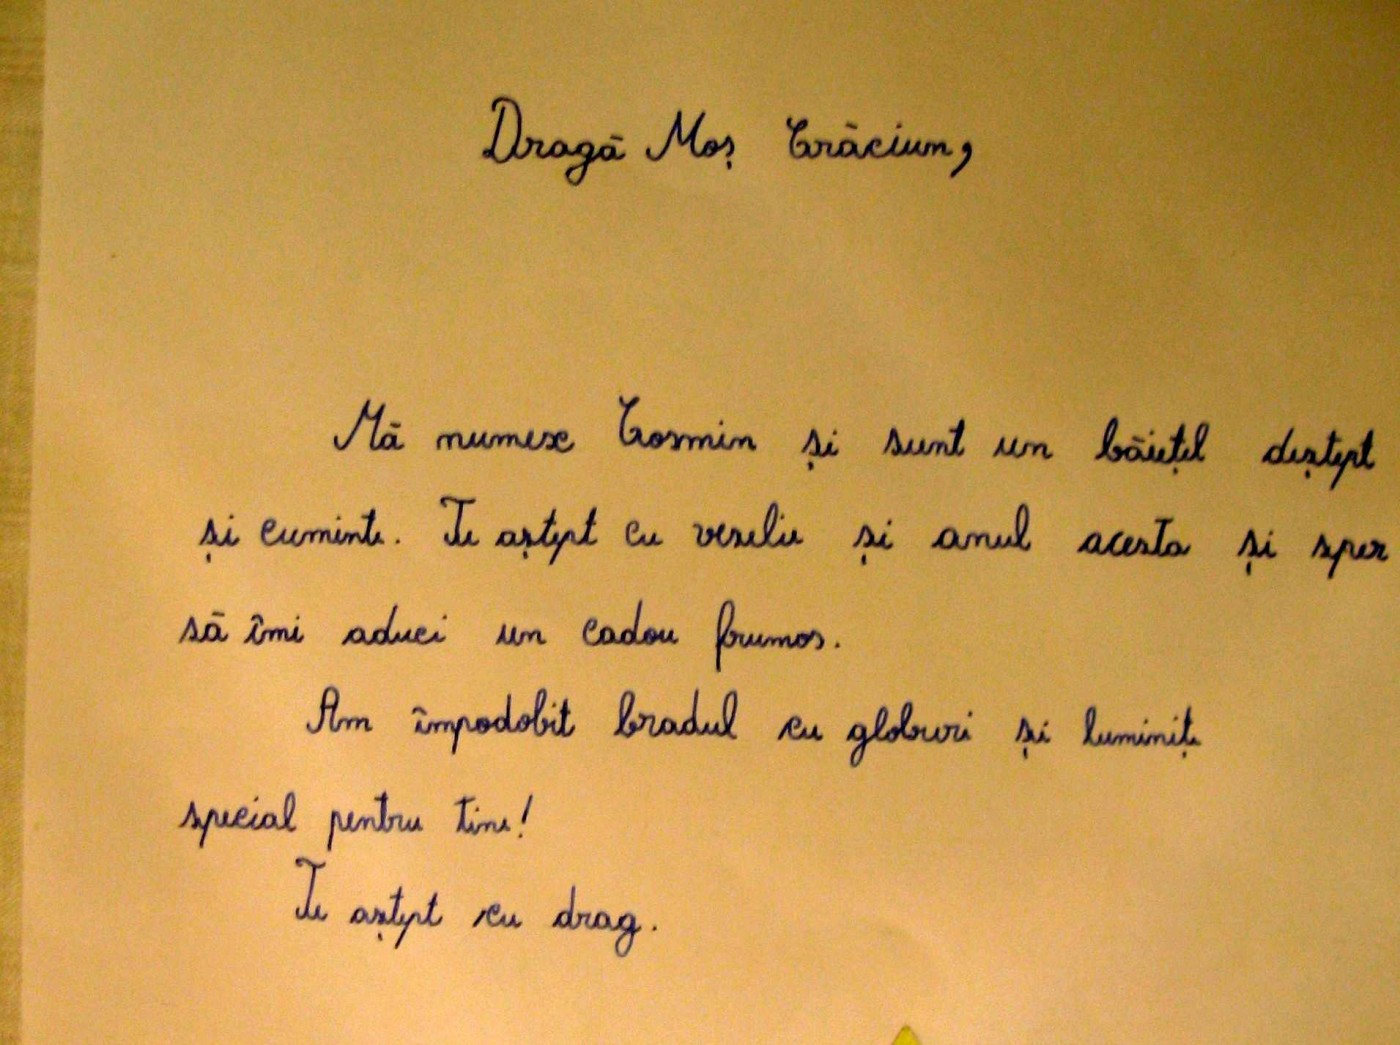 Dragă Moș Crăciun,
Mă numesc Cosmin și sunt un băiețel deștept
și cuminte. Te aștept cu veselie și anul acesta și sper
să îmi aduci un cadou frumos.
Am împodobit bradul cu globuri și luminițe
special pentru tine!
Te aștept cu drag.